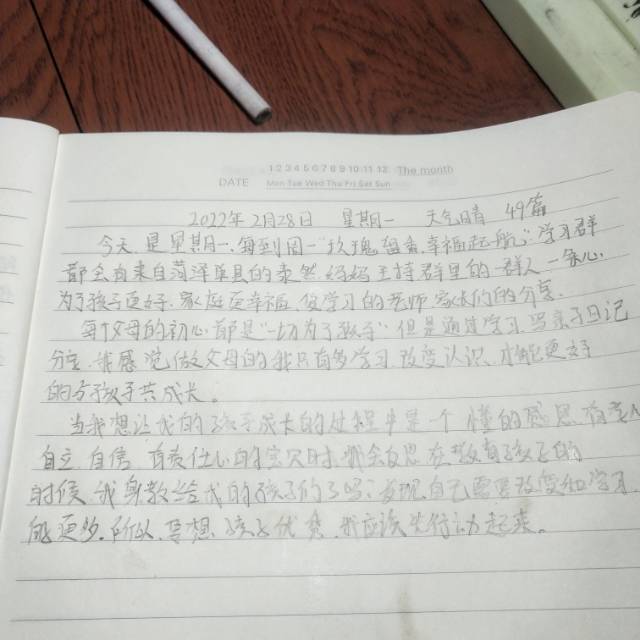 1 2 3 4 5 6 7 8 9 10 11 12 The month
DATE Mon Tue Wed Thu Fri Sat Sun
2022年2月28日 星期一 天气晴 49篇
今天是星期一,每到周一玫瑰留香幸福起航心学习群
都会有来自菏泽单县的 妈妈主持群里的一群人一条心
为了孩子更好,家庭更幸福 学习的老师 家长们的分享.
每个父母的初心都是“一切为了孩子”但是通过学习,写亲子日记
分享,我感觉做父母的我只有多学习改变认识,才能更好
的与孩子共成长。
当我想让我的孩子成长的过程中是一个懂的感恩
自立,自信,有责任心的 时 我会反思在教育孩子的
时候,我身教给我的孩子们了吗?发现自己需要改变和学习
的更多,所以,要想孩子优秀,我应该先行动起来。